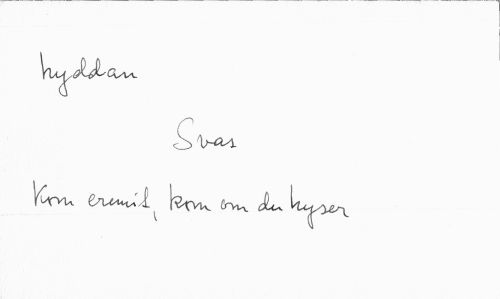 hyddan
Svas
Kom eremit, kom om du hyser